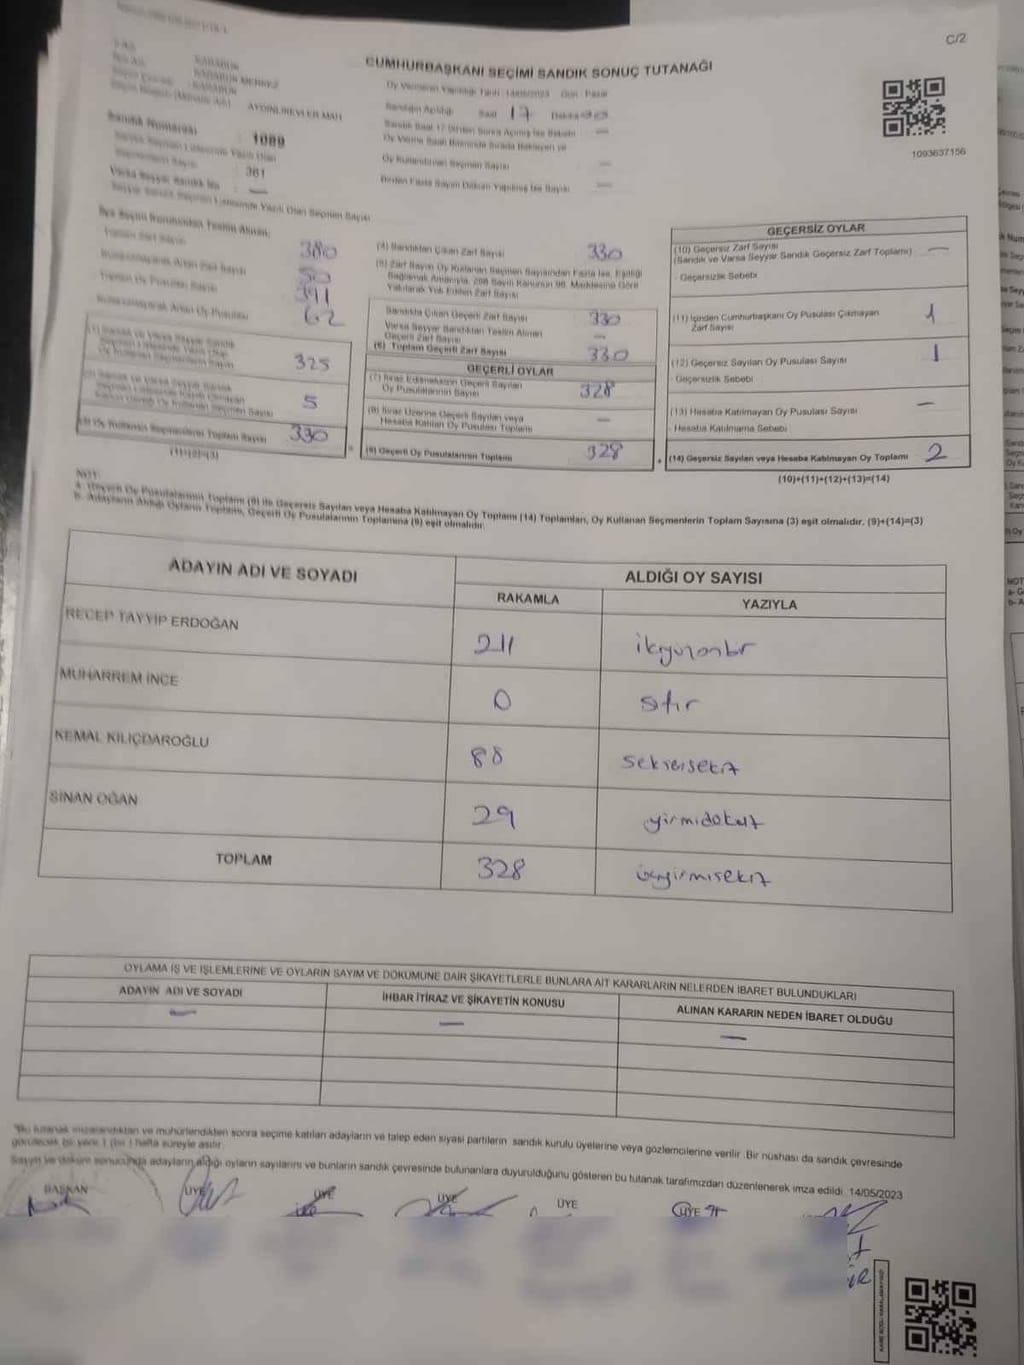 C/2
CUMHURBAŞKANI SEÇİMİ SANDIK SONUÇ TUTANAĞI
KARABÜK
KARABÜK MERKEZ
KARABÜK
AYDINLIKEVLER MAH.
Sandık Numarası : 1089
361
Varsa Seyyar Sandık No : —
Seyyar Sandık Seçmen Listesinde Yazılı Olan Seçmen Sayısı
Oy Vermenin Yapıldığı Tarih 14/05/2023 Gün Pazar
Sandığın Açıldığı Saat 17 Dakika
Oy Kullandırılan Seçmen Sayısı —
Birden Fazla Sayım Döküm Yapılmış İse Sayısı —
1093637156
İlçe Seçim Kurulundan Teslim Alınan;
Toplam Zarf Sayısı 380
Kullanılmayarak Artan Zarf Sayısı 50
Toplam Oy Pusulası Sayısı 391
Kullanılmayarak Artan Oy Pusulası 62
325
5
(3) Oy Kullanan Seçmenlerin Toplam Sayısı 330
(1)+(2)=(3)
(4) Sandıktan Çıkan Zarf Sayısı 330
(5) Zarf Sayısı Oy Kullanan Seçmen Sayısından Fazla İse, Eşitliği
Sağlamak Amacıyla, 298 Sayılı Kanunun 98. Maddesine Göre
Yakılarak Yok Edilen Zarf Sayısı
Sandıkta Çıkan Geçerli Zarf Sayısı 330
Varsa Seyyar Sandıktan Teslim Alınan
Geçerli Zarf Sayısı —
(6) Toplam Geçerli Zarf Sayısı 330
GEÇERLİ OYLAR
(7) İtiraz Edilmeksizin Geçerli Sayılan
Oy Pusulalarının Sayısı 328
(8) İtiraz Üzerine Geçerli Sayılan veya
Hesaba Katılan Oy Pusulası Toplamı —
(9) Geçerli Oy Pusulalarının Toplamı 328
GEÇERSİZ OYLAR
(10) Geçersiz Zarf Sayısı —
(Sandık ve Varsa Seyyar Sandık Geçersiz Zarf Toplamı)
- Geçersizlik Sebebi
(11) İçinden Cumhurbaşkanı Oy Pusulası Çıkmayan
Zarf Sayısı 1
(12) Geçersiz Sayılan Oy Pusulası Sayısı 1
- Geçersizlik Sebebi
(13) Hesaba Katılmayan Oy Pusulası Sayısı —
- Hesaba Katılmama Sebebi
(14) Geçersiz Sayılan veya Hesaba Katılmayan Oy Toplamı 2
(10)+(11)+(12)+(13)=(14)
NOT:
a- Geçerli Oy Pusulalarının Toplamı (9) ile Geçersiz Sayılan veya Hesaba Katılmayan Oy Toplamı (14) Toplamları, Oy Kullanan Seçmenlerin Toplam Sayısına (3) eşit olmalıdır. (9)+(14)=(3)
b- Adayların Aldığı Oyların Toplamı, Geçerli Oy Pusulalarının Toplamına (9) eşit olmalıdır.
ADAYIN ADI VE SOYADI
ALDIĞI OY SAYISI
RAKAMLA YAZIYLA
RECEP TAYYİP ERDOĞAN 211 ikiyüzonbir
MUHARREM İNCE 0 sıfır
KEMAL KILIÇDAROĞLU 88 seksensekiz
SİNAN OĞAN 29 yirmidokuz
TOPLAM 328 üçyirmisekiz
OYLAMA İŞ VE İŞLEMLERİNE VE OYLARIN SAYIM VE DÖKÜMÜNE DAİR ŞİKAYETLERLE BUNLARA AİT KARARLARIN NELERDEN İBARET BULUNDUKLARI
ADAYIN ADI VE SOYADI İHBAR İTİRAZ VE ŞİKAYETİN KONUSU ALINAN KARARIN NEDEN İBARET OLDUĞU
— — —
*Bu tutanak imzalandıktan ve mühürlendikten sonra seçime katılan adayların ve talep eden siyasi partilerin sandık kurulu üyelerine veya gözlemcilerine verilir. Bir nüshası da sandık çevresinde
görülecek bir yere 1 (bir) hafta süreyle asılır.
Sayım ve döküm sonucunda adayların aldığı oyların sayılarını ve bunların sandık çevresinde bulunanlara duyurulduğunu gösteren bu tutanak tarafımızdan düzenlenerek imza edildi. 14/05/2023
BAŞKAN ÜYE ÜYE ÜYE ÜYE ÜYE